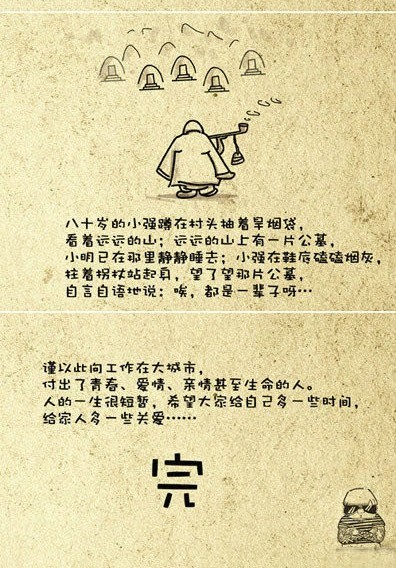 八十岁的小强蹲在村头抽着旱烟袋，
看着远远的山；远远的山上有一片公墓，
小明已在那里静静睡去；小强在鞋底磕磕烟灰，
拄着拐杖站起身，望了望那片公墓，
自言自语地说：唉，都是一辈子呀…
谨以此向工作在大城市，
付出了青春、爱情、亲情甚至生命的人。
人的一生很短暂，希望大家给自己多一些时间，
给家人多一些关爱……
完